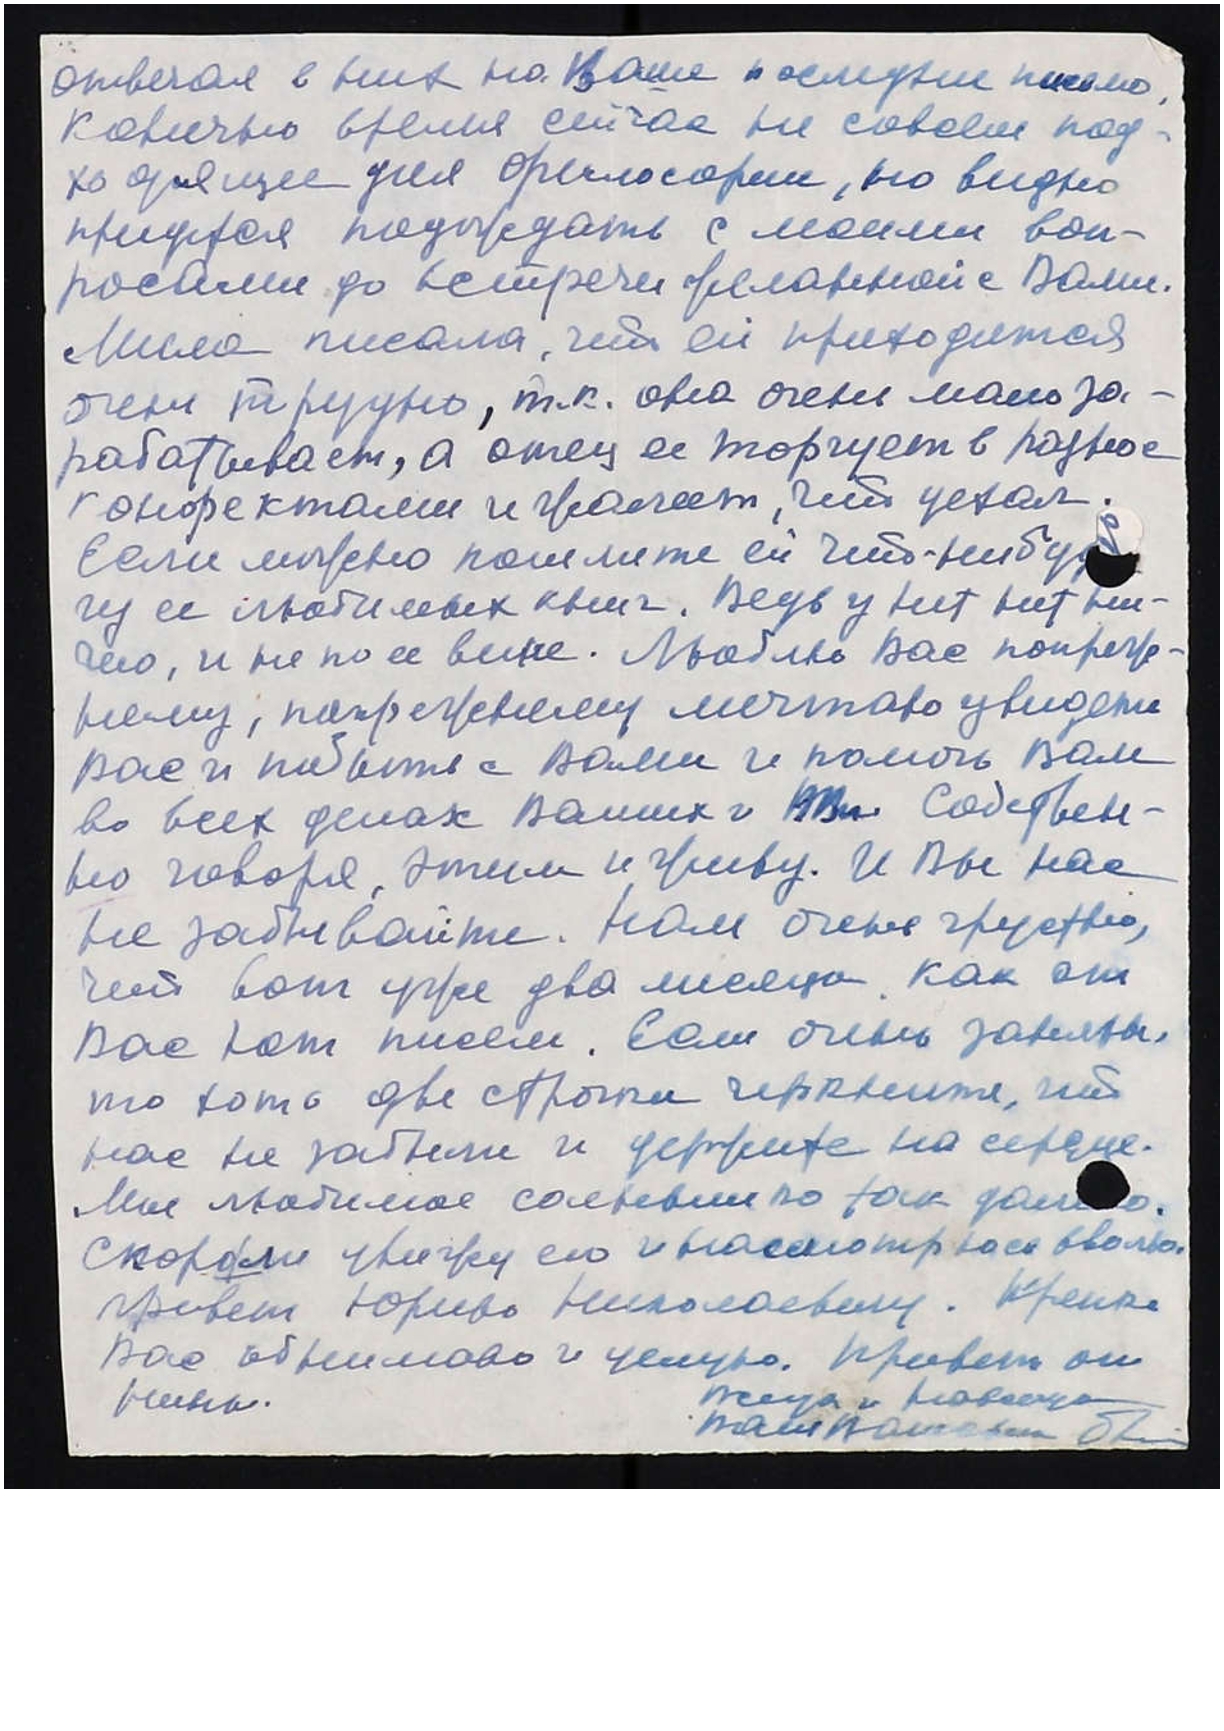 отвечал в них на Ваше последнее письмо.
Конечно время сейчас не совсем под-
ходящее для философии, но видно
придётся подождать с моими воп-
росами до встречи желанной с Вами.
Мила писала, что ей приходится
очень трудно, т.к. она очень мало за-
рабатывает, а отец ее торгует в разнос
конфектами и жалеет, что уехал.
Если можно пошлите ей что-нибудь
из ее любимых книг. Ведь у них нет ни-
чего, и не по ее вине. Люблю Вас попреж-
нему, попрежнему мечтаю увидеть
Вас и побыть с Вами и помочь Вам
во всех делах Ваших и Собствен-
но говоря, этим и живу. И Вы нас
не забывайте. Нам очень грустно,
что вот уже два месяца как от
Вас нет писем. Если очень заняты,
то хоть две строчки черкните, что
нас не забыли и держите на сердце.
Мое любимое солнышко так далеко.
Скоро ли увижу его и насмотрюсь вволю.
Привет Юрию Николаевичу. Крепко
Вас обнимаю и целую. Привет от
Нины.
Всегда и навсегда
Ваш